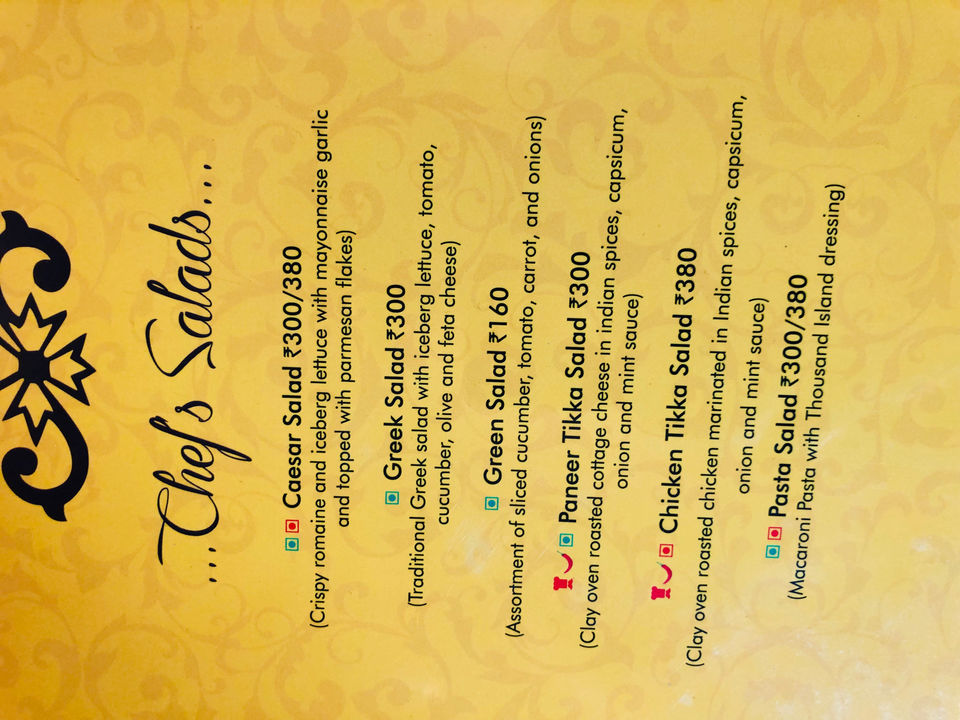 ...Chef's Salads...
Caesar Salad ₹300/380
(Crispy romaine and iceberg lettuce with mayonnaise garlic
and topped with parmesan flakes)
Greek Salad ₹300
(Traditional Greek salad with iceberg lettuce, tomato,
cucumber, olive and feta cheese)
Green Salad ₹160
(Assortment of sliced cucumber, tomato, carrot, and onions)
Paneer Tikka Salad ₹300
(Clay oven roasted cottage cheese in indian spices, capsicum,
onion and mint sauce)
Chicken Tikka Salad ₹380
(Clay oven roasted chicken marinated in Indian spices, capsicum,
onion and mint sauce)
Pasta Salad ₹300/380
(Macaroni Pasta with Thousand Island dressing)